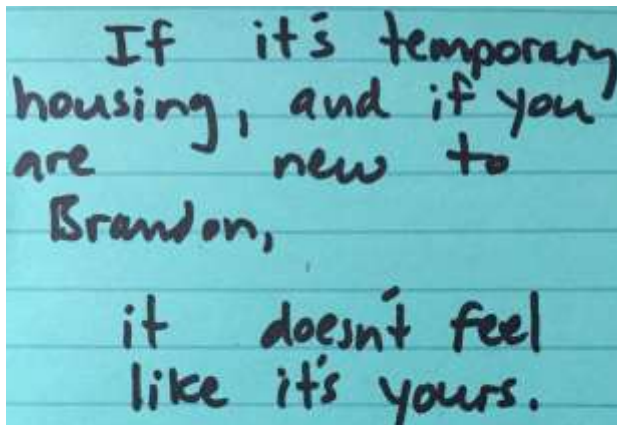 If it's temporary
housing, and if you
are new to
Brandon,
it doesn't feel
like it's yours.